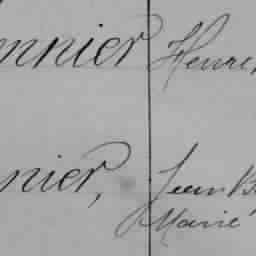 nnier Henri
nier, Jean B
Marie